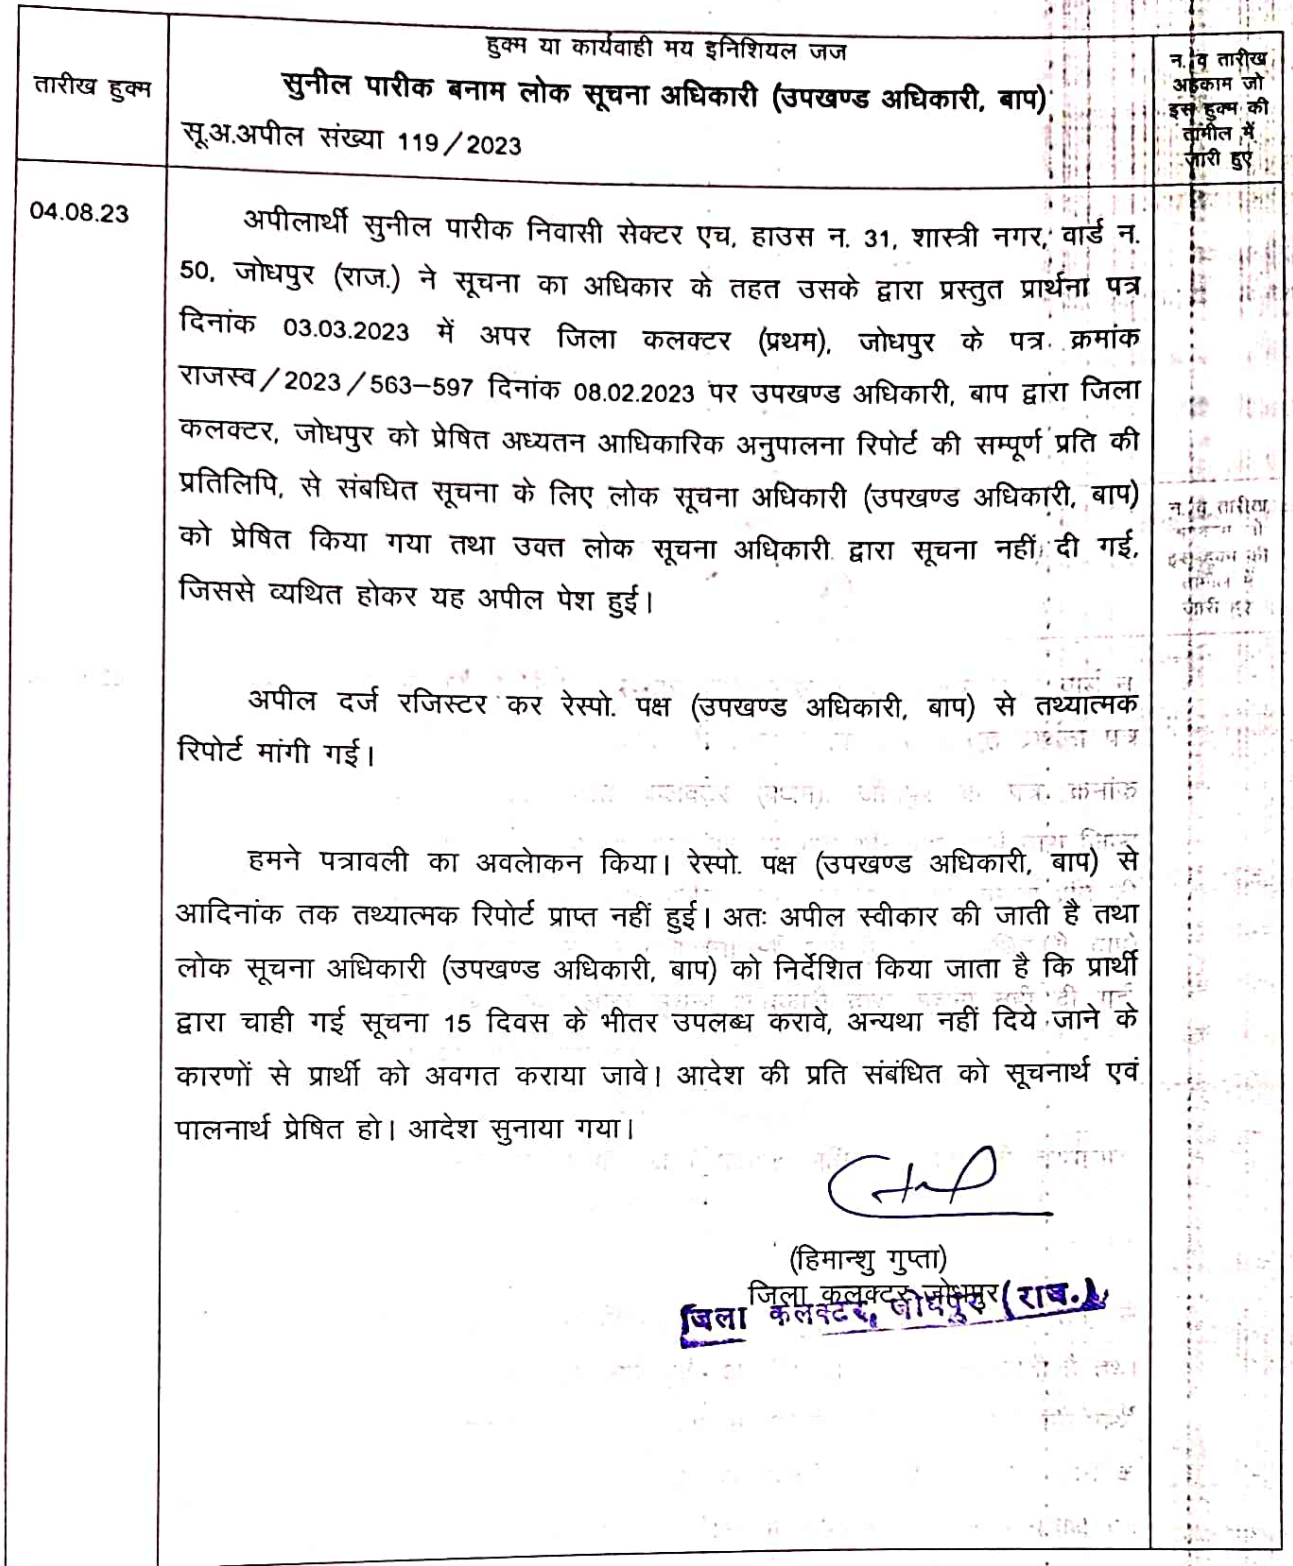 हुक्म या कार्यवाही मय इनिशियल जज
तारीख हुक्म
सुनील पारीक बनाम लोक सूचना अधिकारी (उपखण्ड अधिकारी, बाप)
सू.अ.अपील संख्या 119/2023
न. व तारीख
अहकाम जो
इस हुक्म की
तामील में
जारी हुए
04.08.23
अपीलार्थी सुनील पारीक निवासी सेक्टर एच, हाउस न. 31, शास्त्री नगर, वार्ड न.
50, जोधपुर (राज.) ने सूचना का अधिकार के तहत उसके द्वारा प्रस्तुत प्रार्थना पत्र
दिनांक 03.03.2023 में अपर जिला कलक्टर (प्रथम), जोधपुर के पत्र क्रमांक
राजस्व/2023/563–597 दिनांक 08.02.2023 पर उपखण्ड अधिकारी, बाप द्वारा जिला
कलक्टर, जोधपुर को प्रेषित अध्यतन आधिकारिक अनुपालना रिपोर्ट की सम्पूर्ण प्रति की
प्रतिलिपि, से संबधित सूचना के लिए लोक सूचना अधिकारी (उपखण्ड अधिकारी, बाप)
को प्रेषित किया गया तथा उक्त लोक सूचना अधिकारी द्वारा सूचना नहीं दी गई,
जिससे व्यथित होकर यह अपील पेश हुई।
अपील दर्ज रजिस्टर कर रेस्पो. पक्ष (उपखण्ड अधिकारी, बाप) से तथ्यात्मक
रिपोर्ट मांगी गई।
हमने पत्रावली का अवलोकन किया। रेस्पो. पक्ष (उपखण्ड अधिकारी, बाप) से
आदिनांक तक तथ्यात्मक रिपोर्ट प्राप्त नहीं हुई। अतः अपील स्वीकार की जाती है तथा
लोक सूचना अधिकारी (उपखण्ड अधिकारी, बाप) को निर्देशित किया जाता है कि प्रार्थी
द्वारा चाही गई सूचना 15 दिवस के भीतर उपलब्ध करावे, अन्यथा नहीं दिये जाने के
कारणों से प्रार्थी को अवगत कराया जावे। आदेश की प्रति संबंधित को सूचनार्थ एवं
पालनार्थ प्रेषित हो। आदेश सुनाया गया।
(हिमान्शु गुप्ता)
जिला कलक्टर जोधपुर
जिला कलक्टर, जोधपुर (राज.)